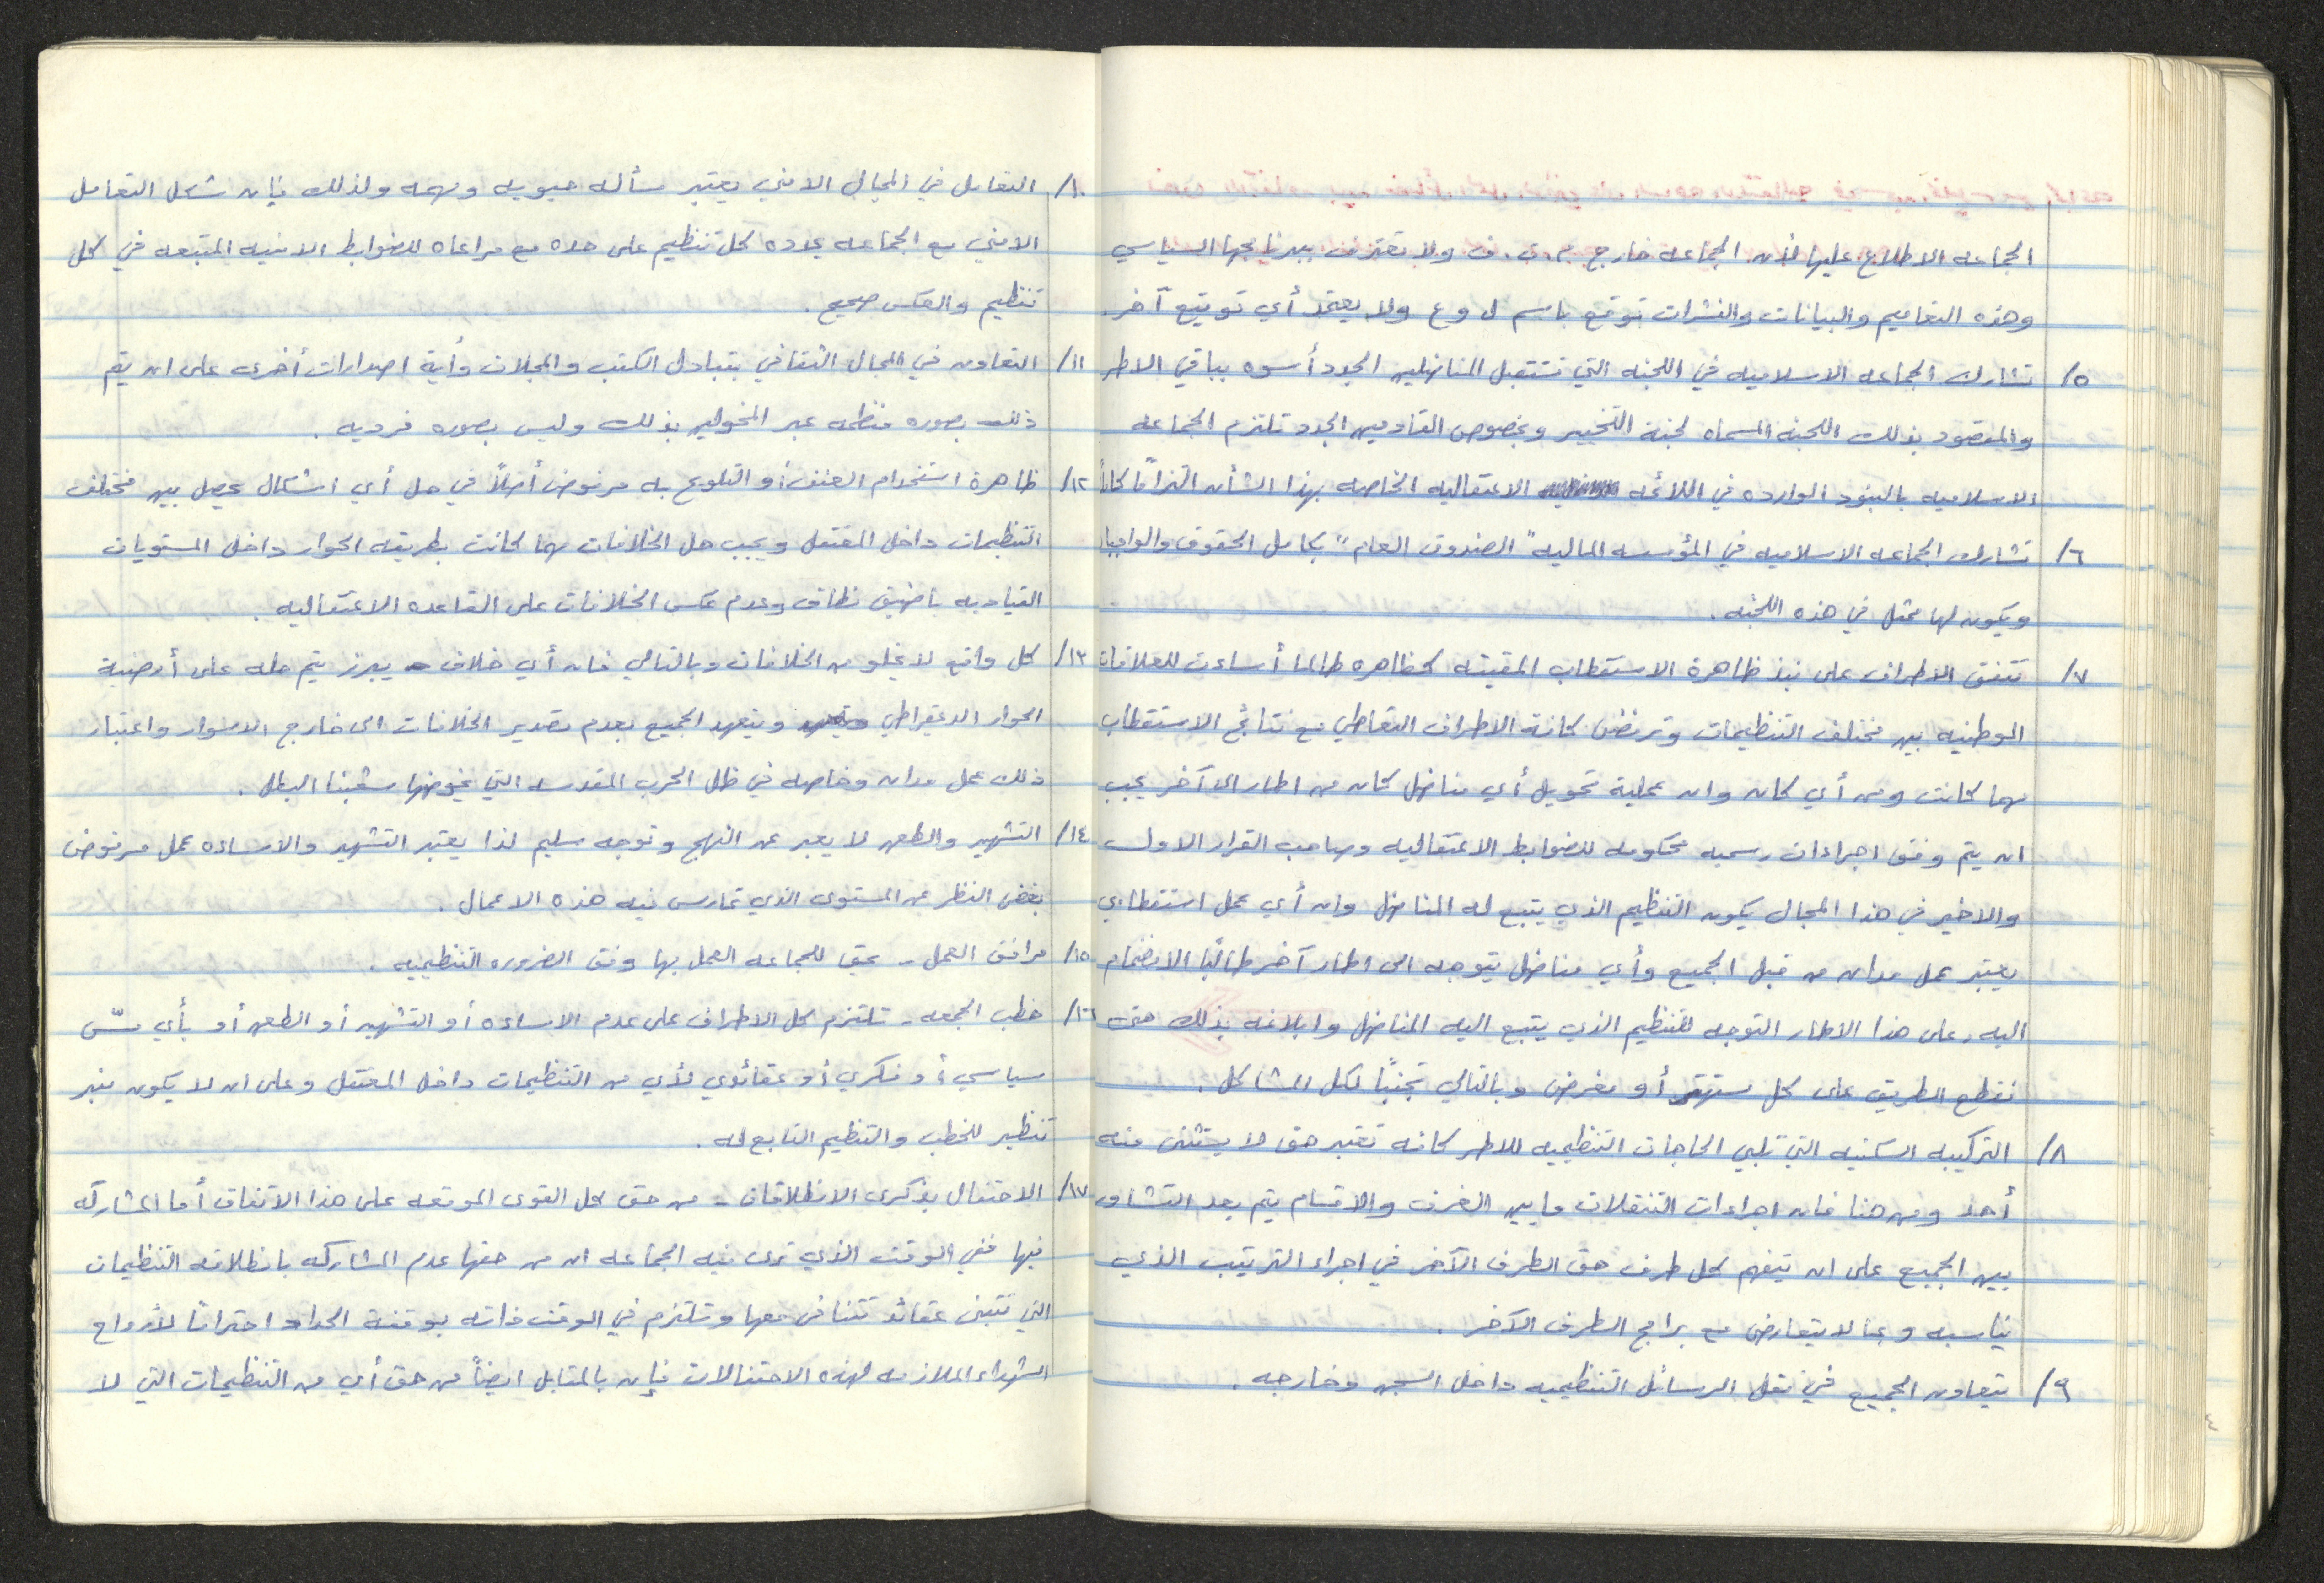 الجماعه الاطلاع عليها لأن الجماعه خارج م.ت.ف ولا تعترف ببرنامجها السياسي
وهذه التعاميم والبيانات والنشرات توقع باسم ل و ع ولا يعتمد أي توقيع آخر.
٥/ تشارك الجماعه الاسلاميه في اللجنه التي تستقبل المناضلين الجدد أسوه بباقي الاطر
والمقصود بذلك اللجنه المسماه لجنة التخيير وبخصوص القادمين الجدد تلتزم الجماعه
الاسلاميه بالبنود الوارده في اللائحه الاعتقاليه الخاصه بهذا الشأن التزاماً كاملاً
٦/ تشارك الجماعه الاسلاميه في المؤسسه الماليه "الصندوق العام" بكامل الحقوق والواجبات
ويكون لها ممثل في هذه اللجنه.
٧/ تتفق الاطراف على نبذ ظاهرة الاستقطاب المقيته كظاهره طالما أساءت للعلاقات
الوطنيه بين مختلف التنظيمات وترفض كافة الاطراف التعاطي مع نتائج الاستقطاب
مهما كانت ومن أي كان وان عملية تحويل أي مناضل كان من اطار الى آخر يجب
ان يتم وفق اجراءات رسميه محكومه للضوابط الاعتقاليه وصاحب القرار الاول
والاخير في هذا المجال يكون التنظيم الذي يتبع له المناضل وان أي عمل استقطابي
يعتبر عمل مدان من قبل الجميع وأي مناضل يتوجه الى اطار آخر طالباً الانضمام
اليه، على هذا الاطار التوجه للتنظيم الذي يتبع اليه المناضل وابلاغه بذلك حتى
نقطع الطريق على كل مستهتر أو مغرض وبالتالي تجنباً لكل المشاكل.
٨/ التركيبه السكنيه التي تلبي الحاجات التنظيميه للاطر كافه تعتبر حق لا يستثنى منه
أحد ومن هنا فان اجراءات التنقلات ما بين الغرف والاقسام يتم بعد التشاور
بين الجميع على ان يتفهم كل طرف حق الطرف الآخر في اجراء الترتيب الذي
يناسبه وبما لا يتعارض مع برامج الطرف الآخر.
٩/ يتعاون الجميع في نقل الرسائل التنظيميه داخل السجن وخارجه.
١٠/ التعامل في المجال الامني يعتبر مسأله حيويه ومهمه ولذلك فإن شكل التعامل
الامني مع الجماعه يحدده كل تنظيم على حده مع مراعاه للضوابط الامنيه المتبعه في كل
تنظيم والعكس صحيح.
١١/ التعاون في المجال الثقافي بتبادل الكتب والمجلات وأية اصدارات أخرى على ان يتم
ذلك بصوره منظمه عبر المخولين بذلك وليس بصوره فرديه.
١٢/ ظاهرة استخدام العنف أو التلويح به مرفوض أصلاً في حل أي اشكال يحصل بين مختلف
التنظيمات داخل المعتقل ويجب حل الخلافات مهما كانت بطريقه الحوار داخل المستويات
القياديه باضيق نطاق وعدم عكس الخلافات على القاعده الاعتقاليه.
١٣/ كل واقع لا يخلو من الخلافات وبالتالي فان أي خلاف يبرز يتم حله على أرضية
الحوار الديمقراطي ويتعهد الجميع بعدم تصدير الخلافات الى خارج الاسوار واعتبار
ذلك عمل مدان وخاصه في ظل الحرب المقدسه التي يخوضها شعبنا البطل.
١٤/ التشهير والطعن لا يعبر عن النهج وتوجه سليم لذا يعتبر التشهير والاساءه عمل مرفوض
بغض النظر عن المستوى الذي تمارس فيه هذه الاعمال.
١٥/ مرافق العمل - يحق للجماعه العمل بها وفق الضروره التنظيميه.
١٦/ خطب الجمعه - تلتزم كل الاطراف على عدم الاساءه أو التشهير أو الطعن أو بأي مسّ
سياسي أو فكري أو عقائدي لأي من التنظيمات داخل المعتقل وعلى ان لا يكون منبر
تنظير للخطب والتنظيم التابع له.
١٧/ الاحتفال بذكرى الانطلاقات - من حق كل القوى الموقعه على هذا الاتفاق أما المشاركه
فيها ففي الوقت الذي ترى فيه الجماعه ان من حقها عدم المشاركه بانطلاقه التنظيمات
التي تتبنى عقائد تتنافى معها وتلتزم في الوقت ذاته بوقفة الحداد احتراماً لأرواح
الشهداء الملازمه لهذه الاحتفالات فإن بالمقابل ايضاً من حق أي من التنظيمات التي لا